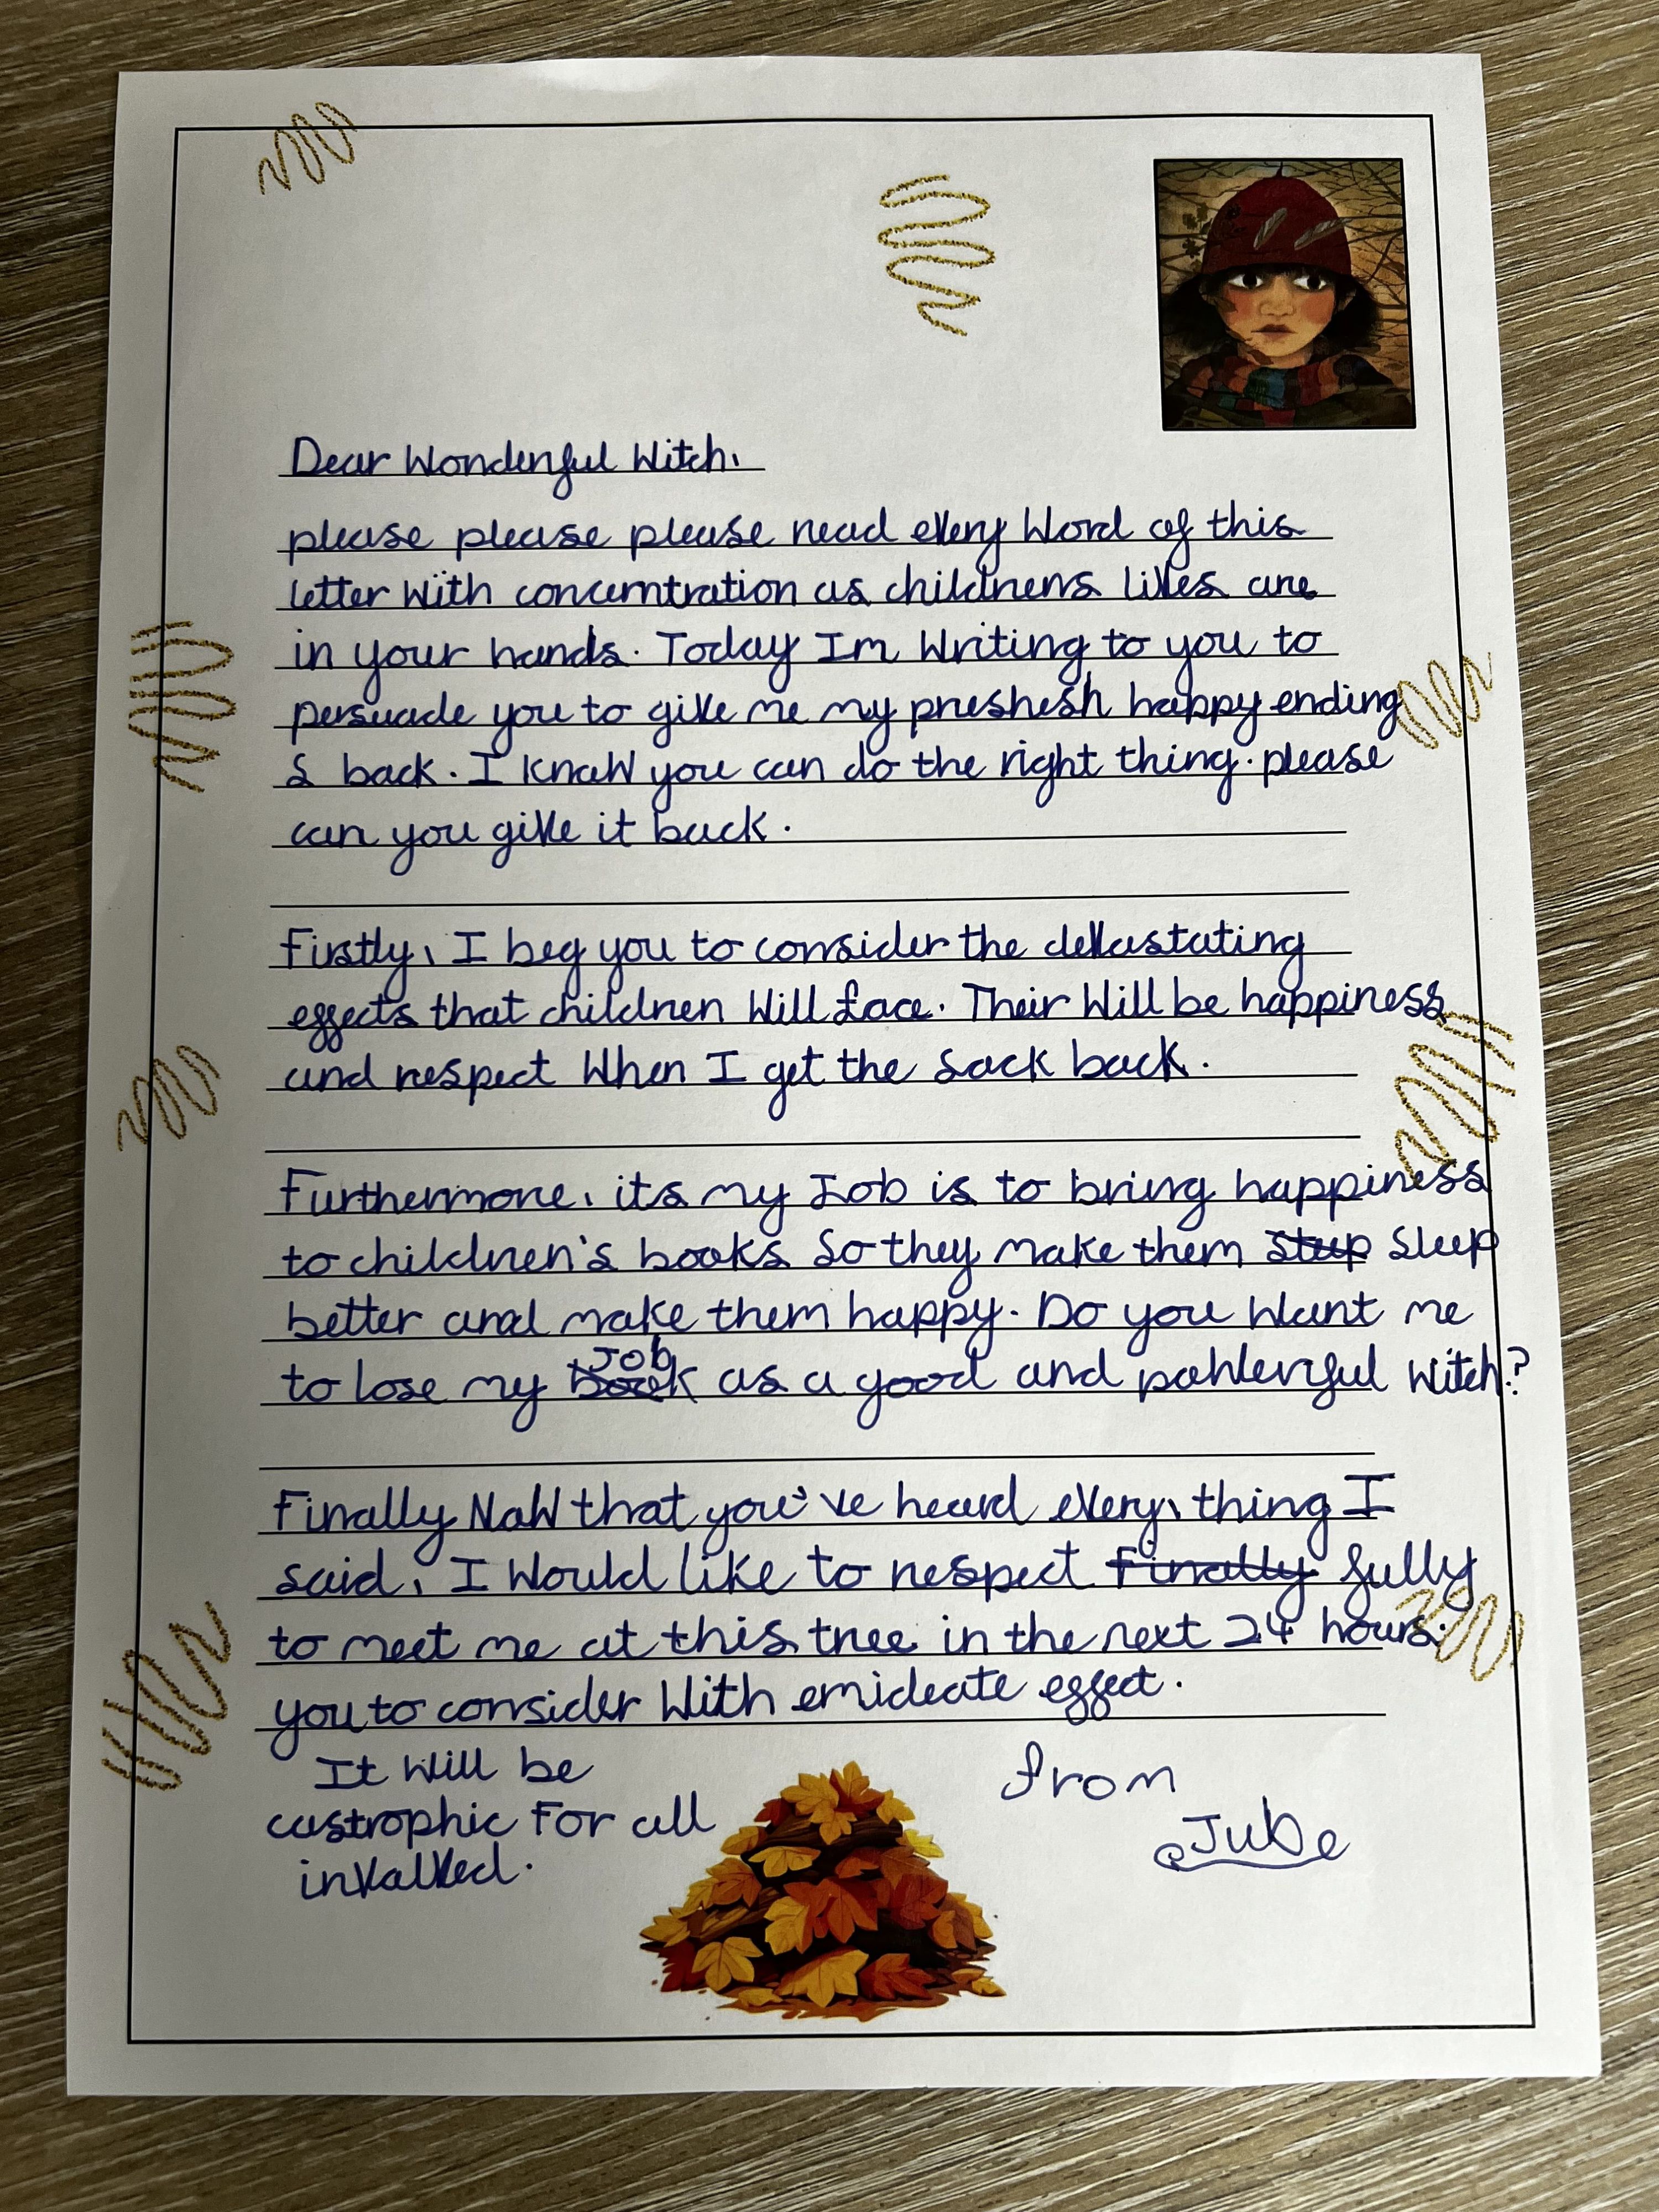 Dear Wonderful Witch,
please please please read every word of this
letter with concerntration as childrens lives are
in your hands. Today Im writing to you to
persuade you to give me my preshesh happy ending
s back. I knaw you can do the right thing. please
can you give it back.
Firstly, I beg you to consider the devastating
effects that children will face. Their will be happiness
and respect when I get the sack back.
Furthermore, its my Job is to bring happiness
to children's books so they make them steep sleep
better and make them happy. Do you want me
to lose my book Job as a good and pohwerful witch?
Finally Naw that you've heard every, thing I
said, I would like to respect Finally fully
to meet me at this tree in the next 24 hours.
you to consider with emideate effect.
It will be
castrophic For all
invalved.
from
Jube